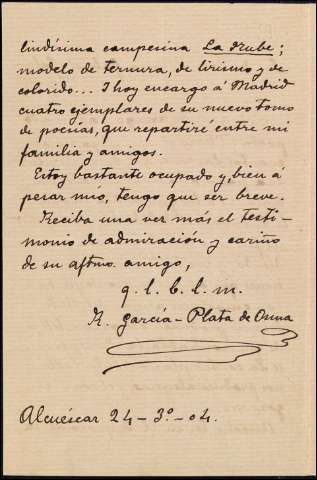 lindísima campesina La Nube;
modelo de ternura, de lirismo y de
colorido... Y hoy encargo á Madrid
cuatro ejemplares de su nuevo tomo
de poesías, que repartiré entre mi
familia y amigos.
Estoy bastante ocupado y, bien á
pesar mío, tengo que ser breve.
Reciba una vez más el testi-
monio de admiración y cariño
de su aftmo. amigo,
q. l. b. l. m.
R. García-Plata de Osma
Alcuéscar 24-3º-04.